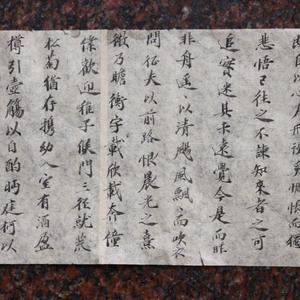 自以心為形役奚惆悵而獨
悲悟已往之不諫知來者之可
追實迷其未遠覺今是而昨
非舟遥以輕颺風飄而吹衣
問征夫以前路恨晨光之熹
微乃瞻衡宇載欣載奔僮
僕歡迎稚子候門三徑就荒
松菊猶存携幼入室有酒盈
樽引壺觴以自酌眄庭柯以